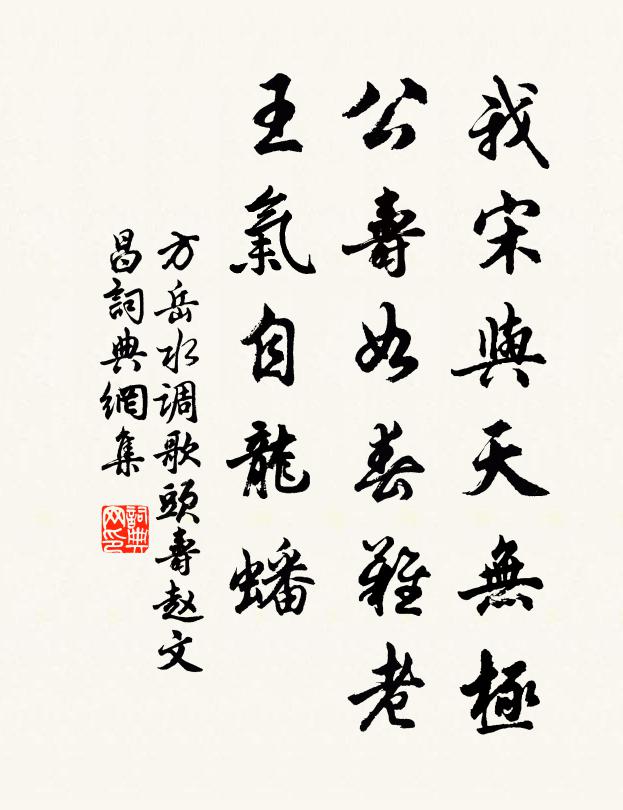 我宋與天無極
公壽如春難老
王氣自龍蟠
方岳水调歌頭壽赵文
昌詞典網集
詞典网印